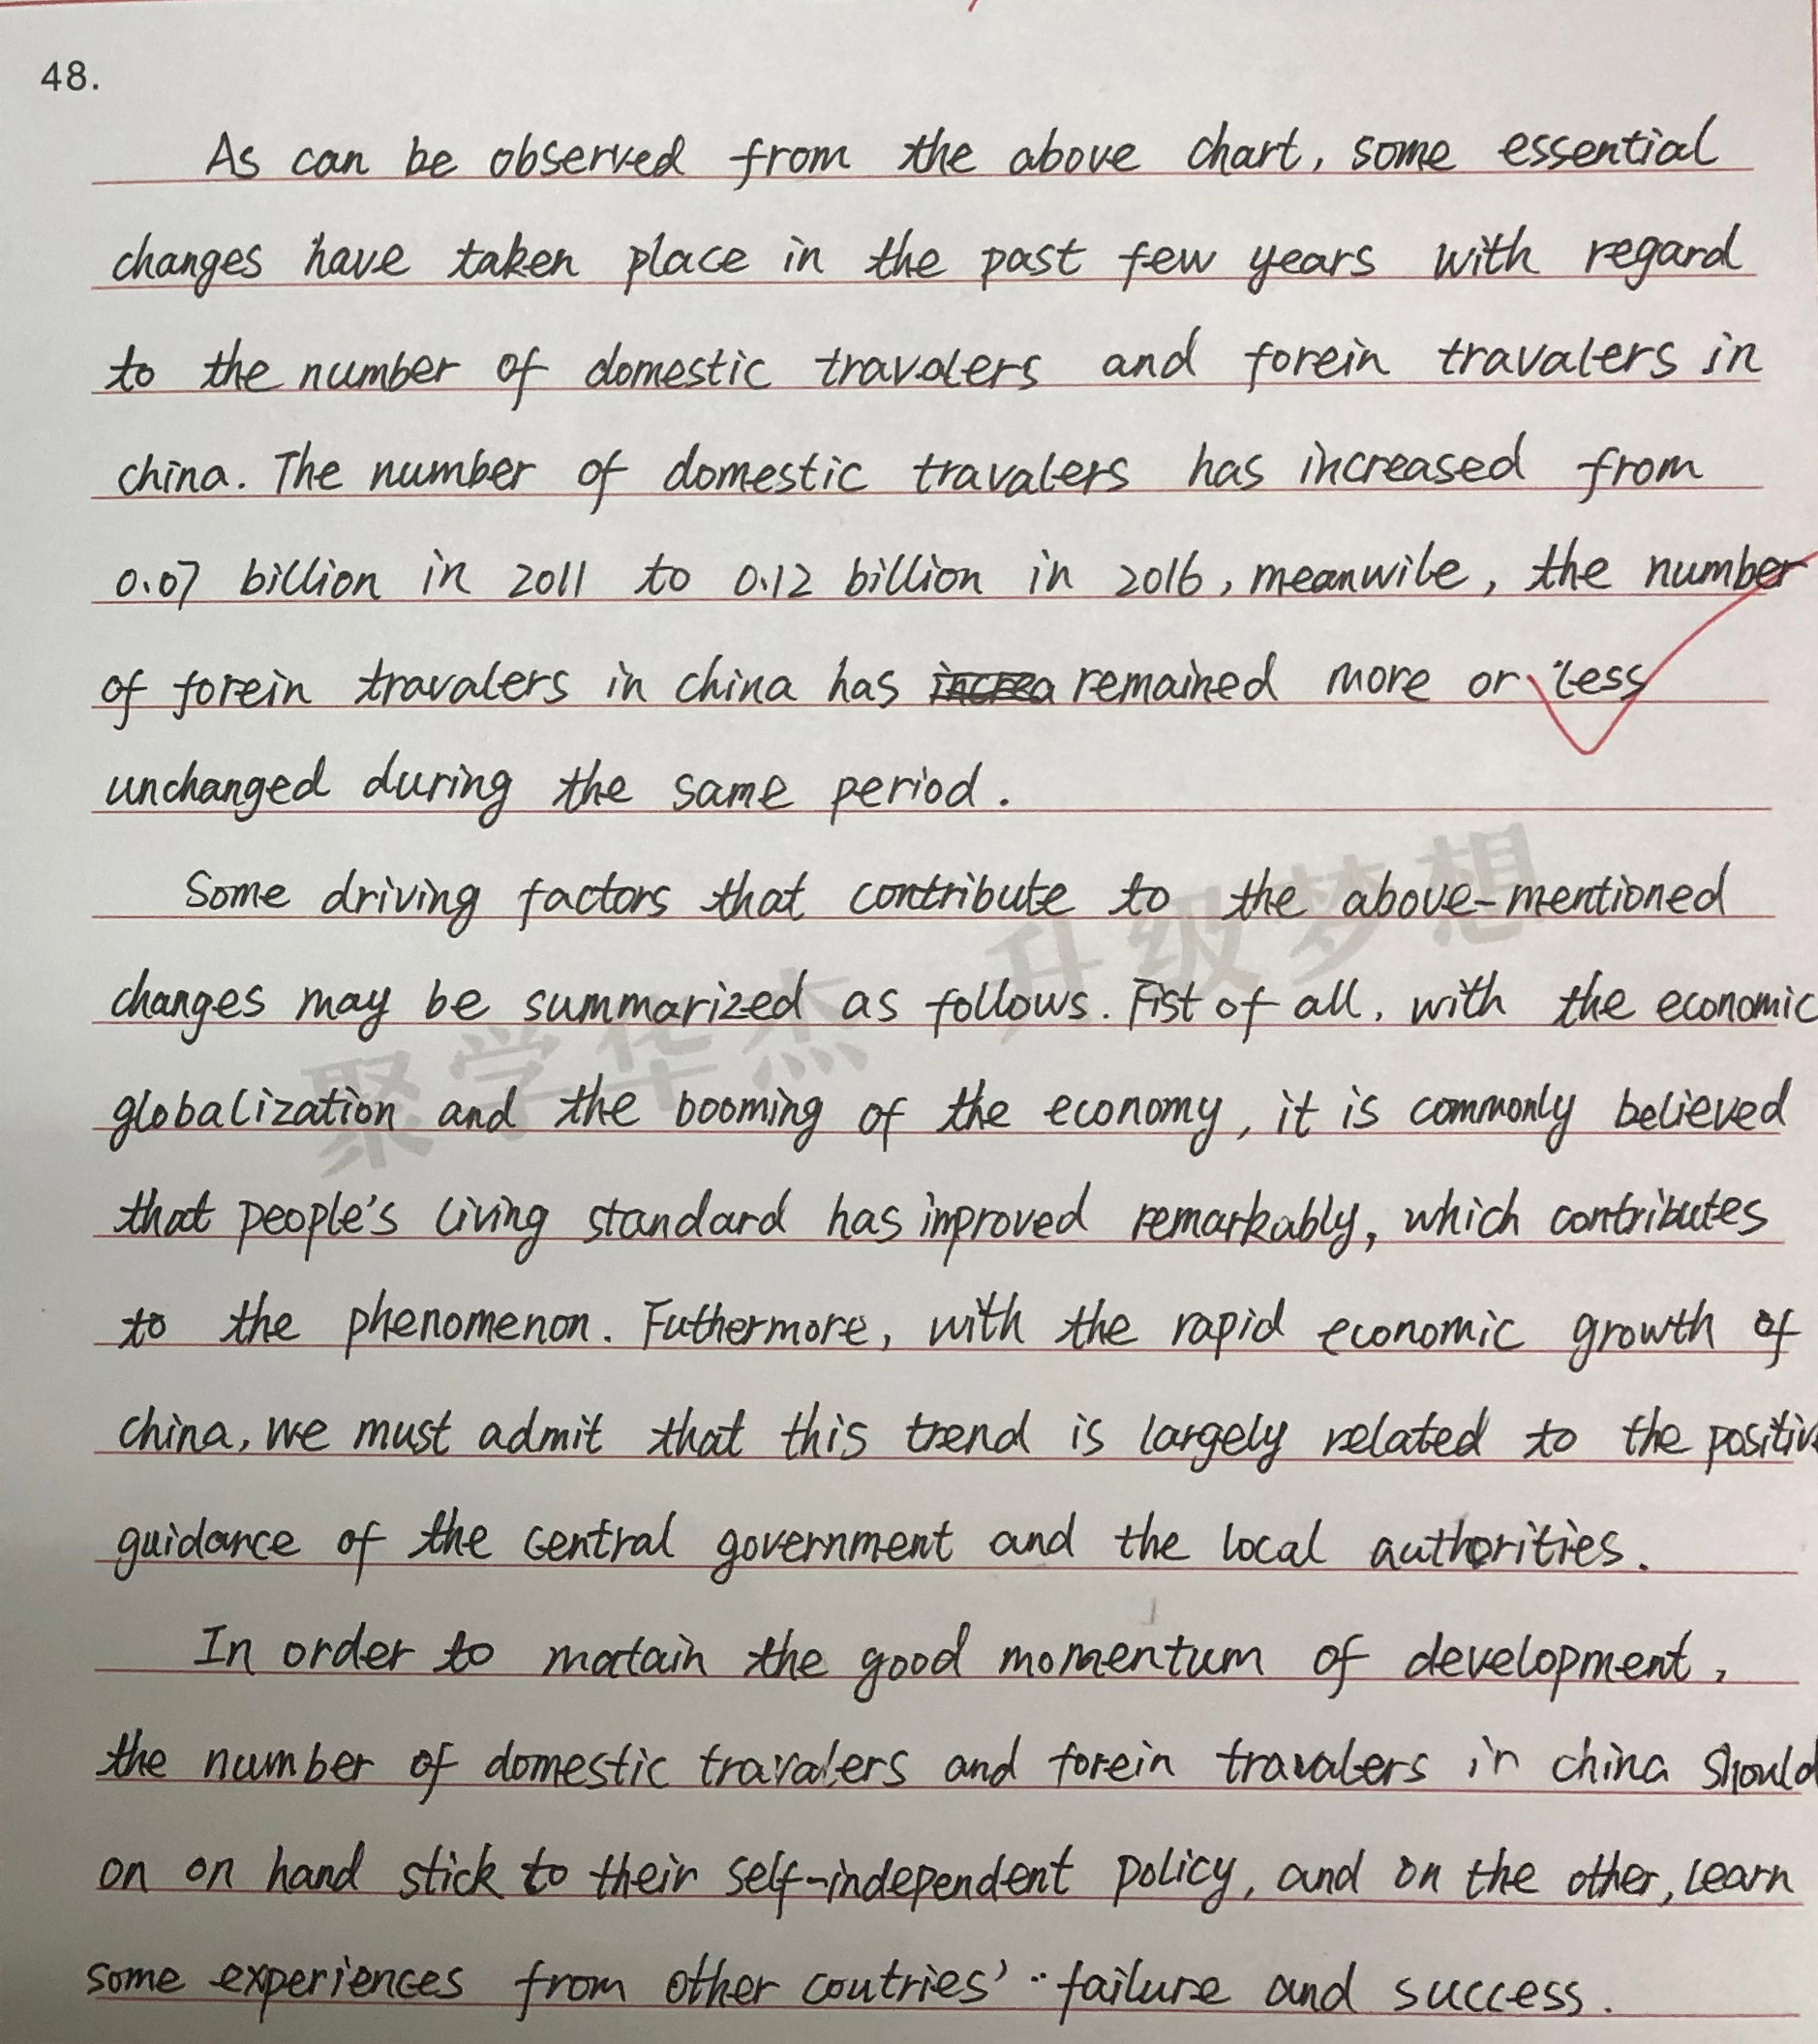 48.
As can be observed from the above chart, some essential
changes have taken place in the past few years with regard
to the number of domestic travalers and forein travalers in
china. The number of domestic travalers has increased from
0.07 billion in 2011 to 0.12 billion in 2016, meanwile, the number
of forein travalers in china has increa remained more or less
unchanged during the same period.
Some driving factors that contribute to the above-mentioned
changes may be summarized as follows. Fist of all, with the economic
globalization and the booming of the economy, it is commonly believed
that people's living standard has improved remarkably, which contributes
to the phenomenon. Futhermore, with the rapid economic growth of
china, we must admit that this trend is largely related to the positiv
guidance of the central government and the local authorities.
In order to matain the good momentum of development,
the number of domestic travalers and forein travalers in china should
on on hand stick to their self-independent policy, and on the other, learn
some experiences from other coutries' failure and success.
聚学华杰 升级梦想